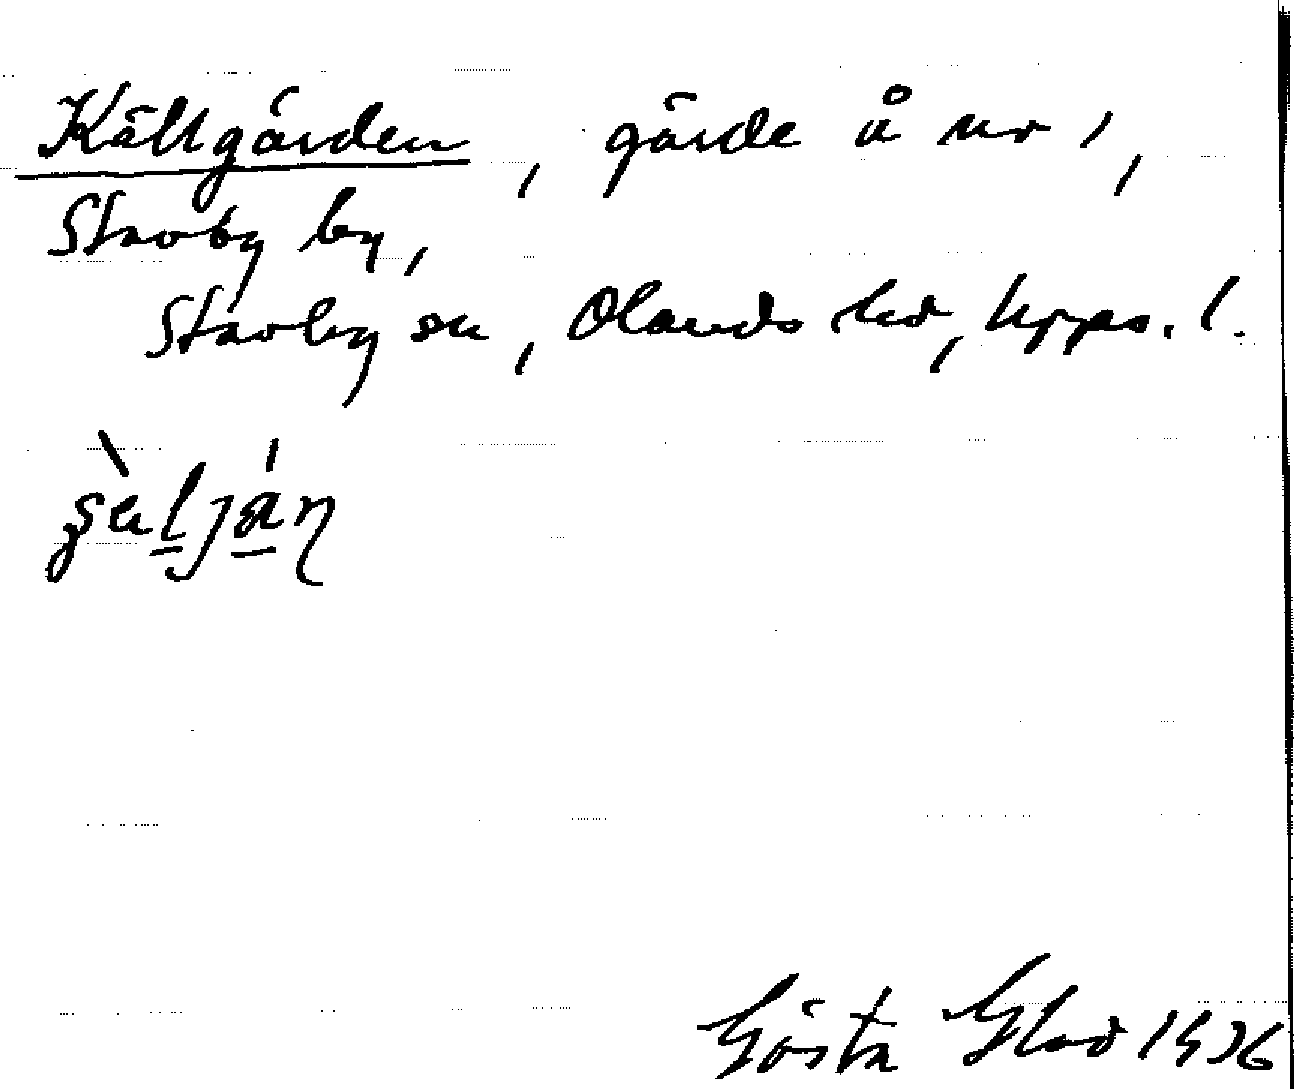 Källgärden, gärde å nr 1,
Stavby by,
Stavby sn, Olands hd, Upps. l.
Gösta Glad 1936